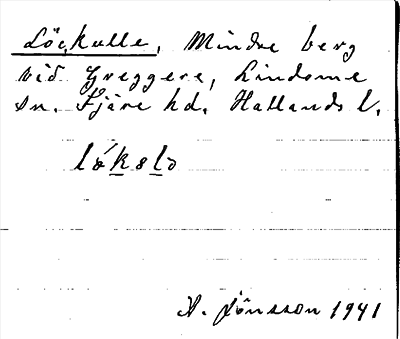 Lök,kulle, Mindre berg
vid Greggere, Lindome
sn. Fjäre hd. Hallands l.
A. Jönsson 1941